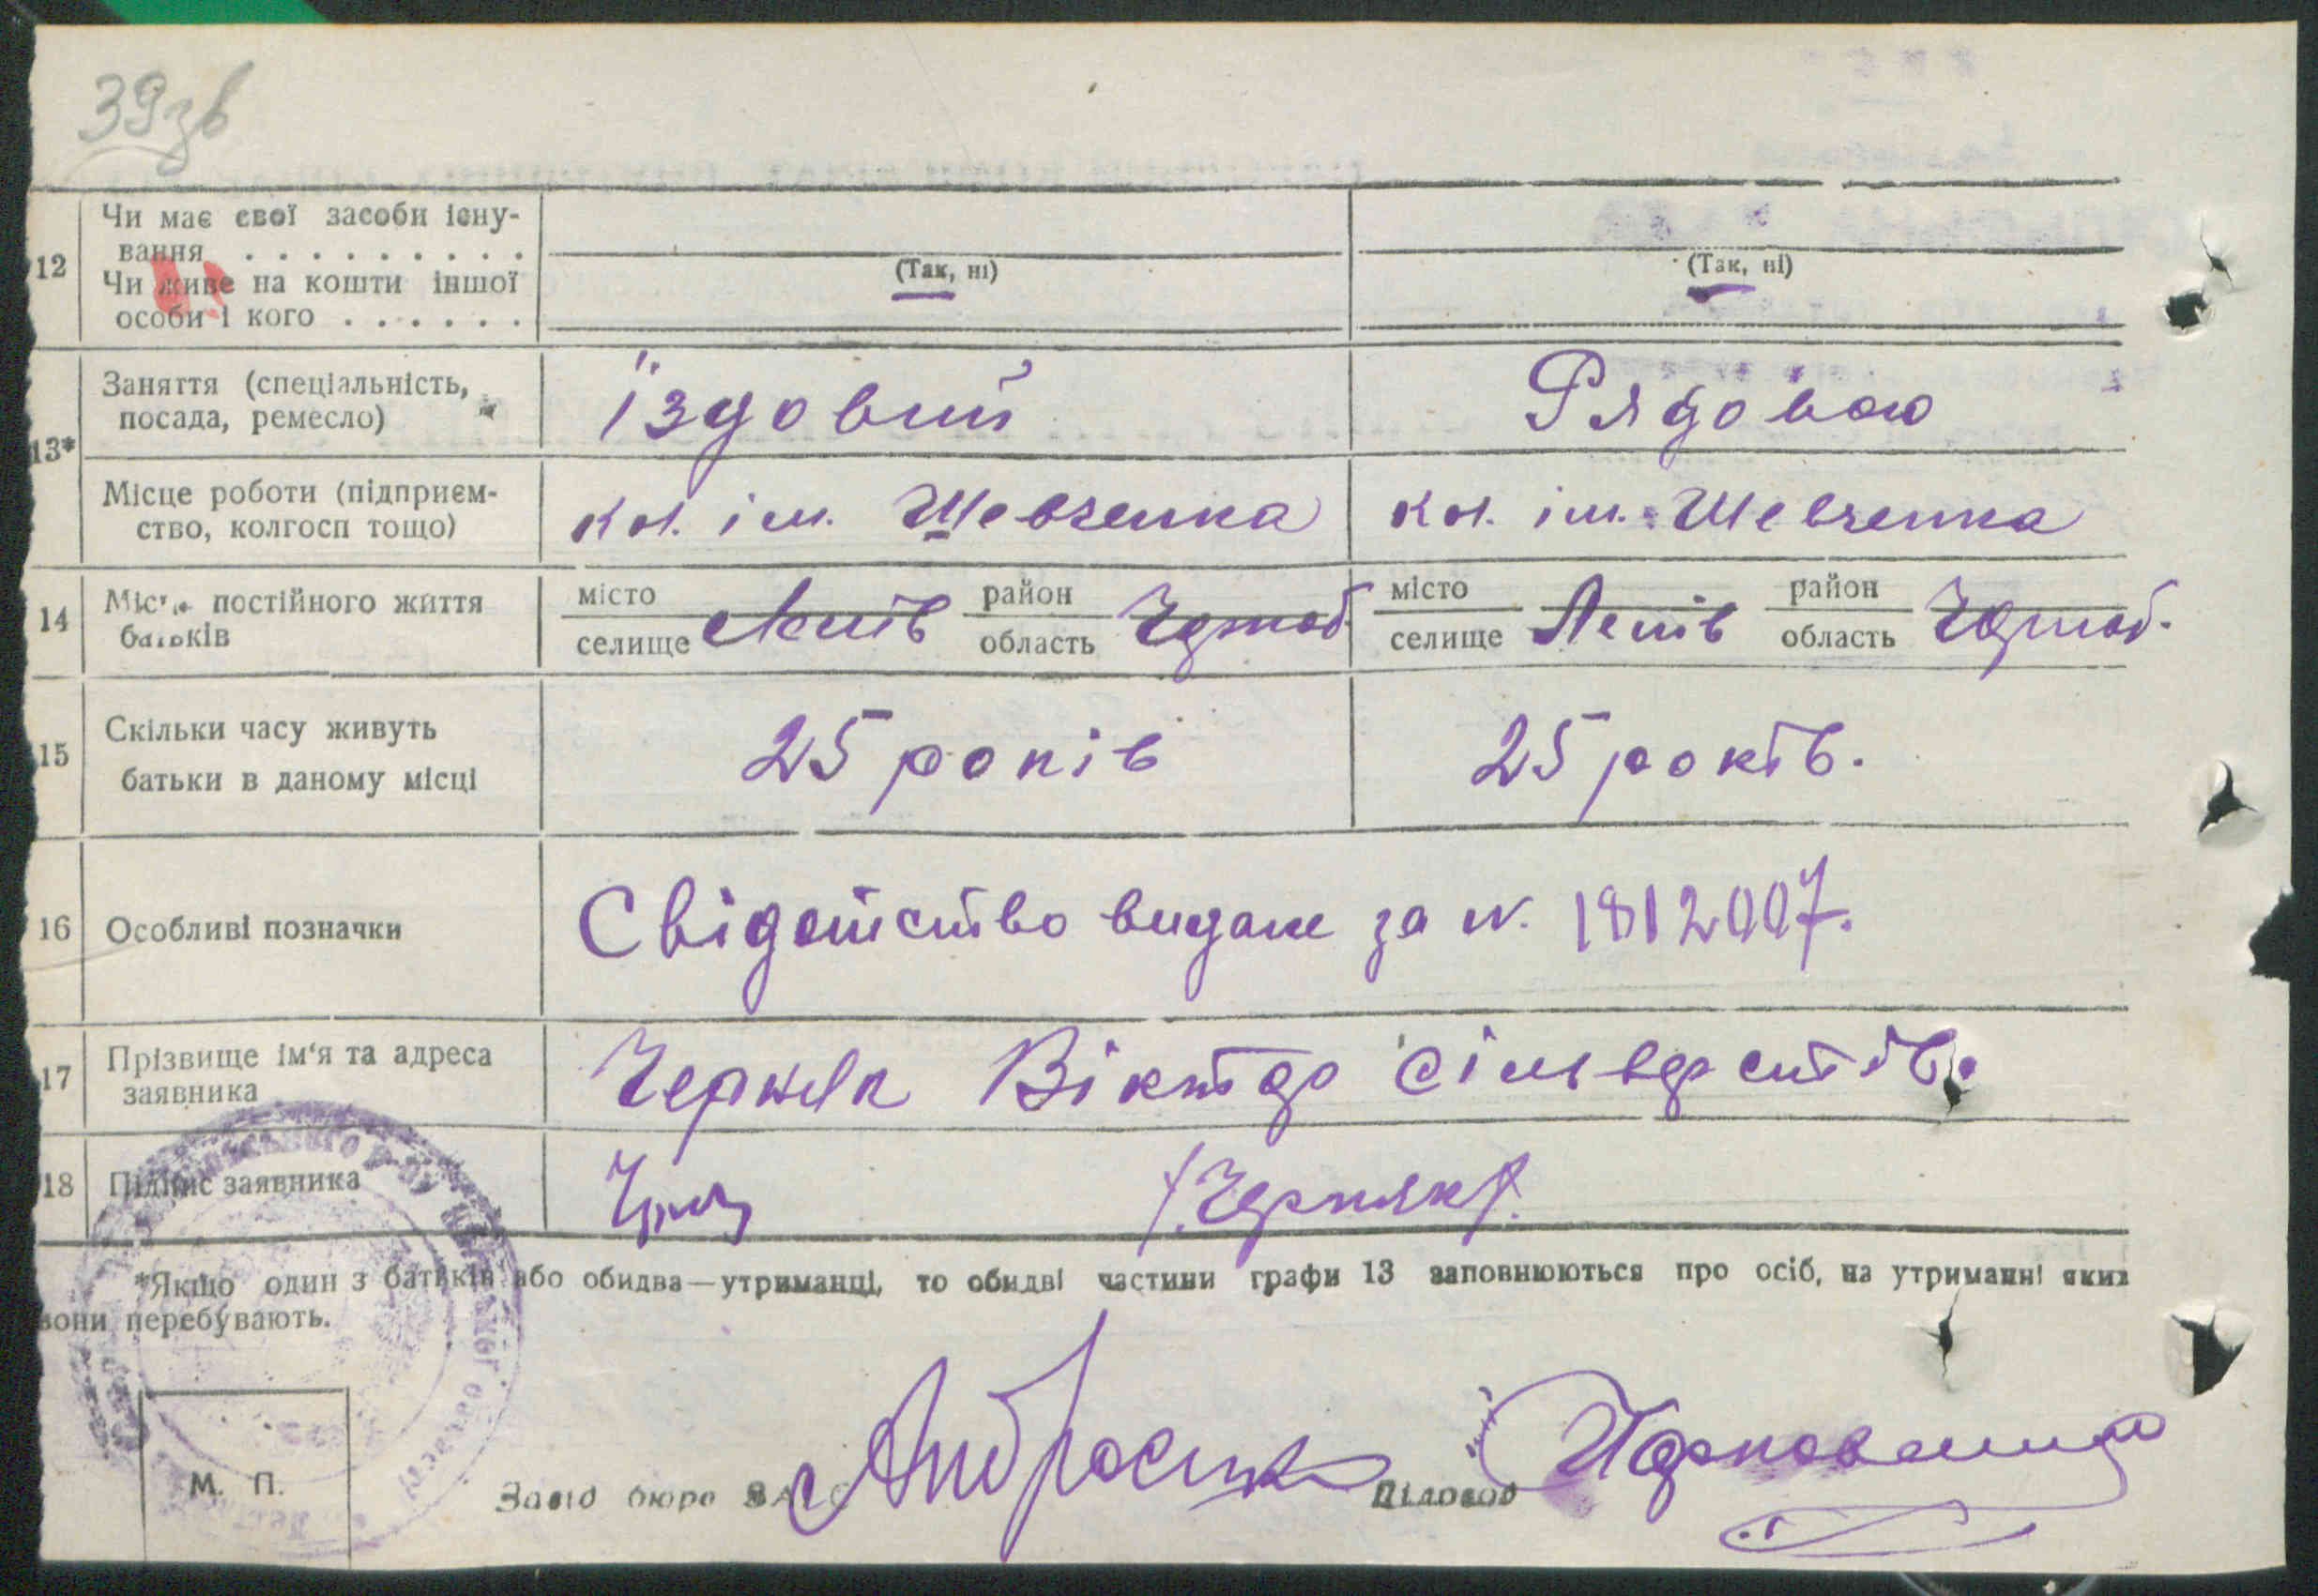 39зв
12 Чи має свої засоби існу-
вання . . . . . . . . . .
(Так, ні) (Так, ні)
Чи живе на кошти іншої
особи і кого . . . . . .
13* Заняття (спеціальність, посада, ремесло) Їздовий Рядовою
Місце роботи (підприєм-
ство, колгосп тощо) кол. ім. Шевченка кол. ім. Шевченка
14 постійного життя батьків місто селище Лепів район область Чорноб. місто селище Лепів район область Чорноб.
15 Скільки часу живуть
батьки в даному місці 25 років 25 років.
16 Особливі позначки Свідотство видане за N. 1812007.
17 Прізвище ім'я та адреса
заявника Черняк Віктор Сільверстів.
18 Підпис заявника /.Черняк/.
*Якщо один з батьків або обидва—утриманці, то обидві частини графи 13 заповнюються про осіб, на утриманні яких
вони перебувають.
М. П.
Завід бюро ЗАГС Діловод